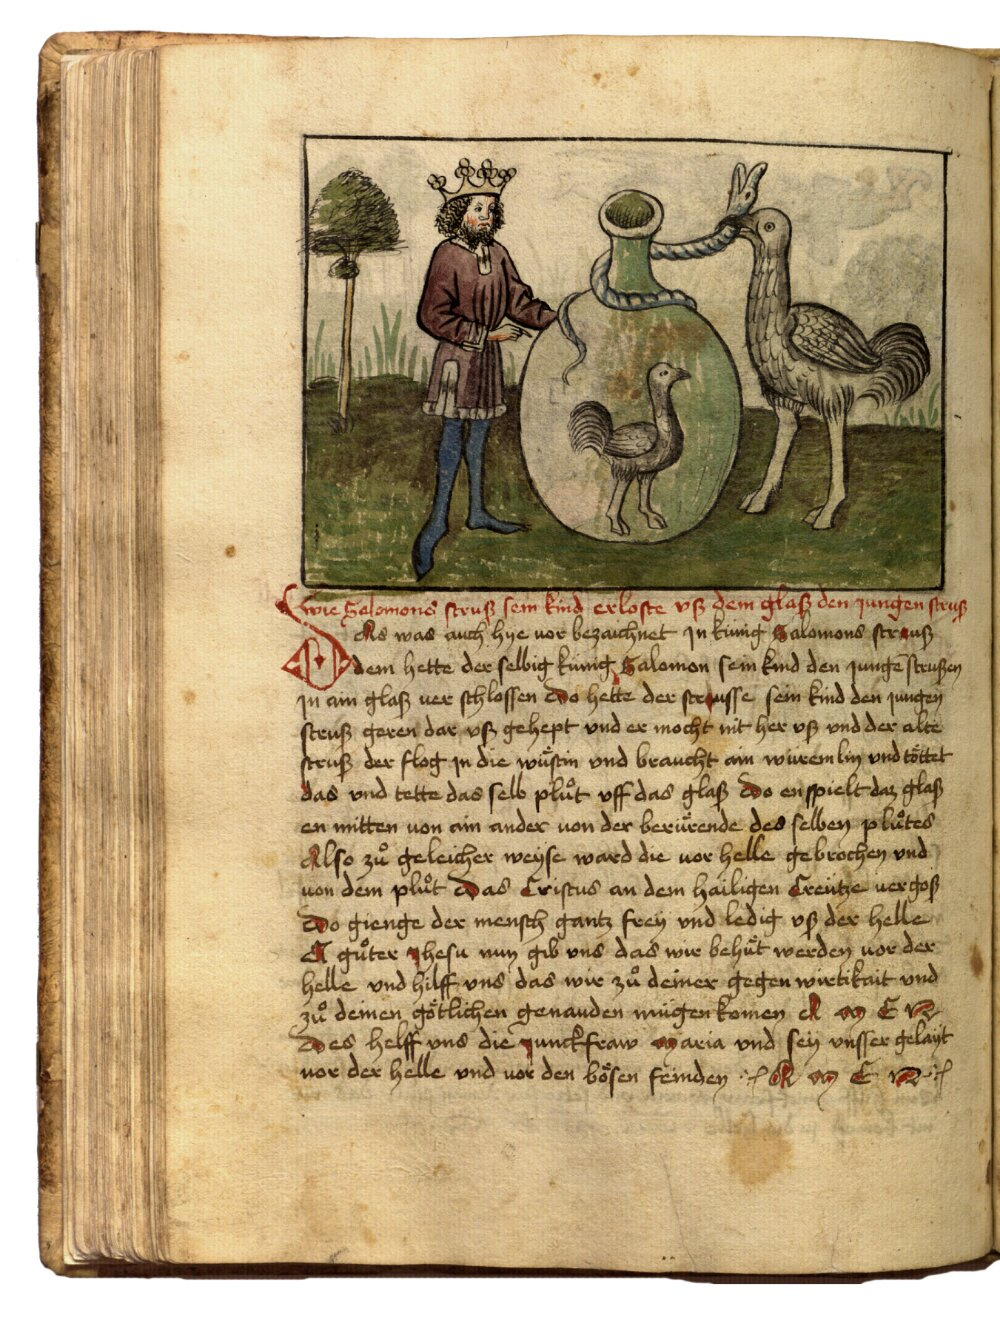 wie Salomons struß sein kind erloste vß dem glaß den jungen struß
DAs was auch hye vor bezaichnet jn künig Salomons strauß
dem hette der selbig künig Salomon sein kind den junge̅ straußen
jn ain glaß ver schlossen Do hette der strausse sein kind den jungen
struß geren dar vß gehept vnd er mocht nit her vß vnd der alte
struß der flog jn die wüstin vnd braucht ain würemlin vnd töttet
das vnd tette das selb plůt vff das glaß Do enspielt daz glaß
en mitten von ain ander von der berürende des selben plůtes
Also zů geleicher weyse ward die vor helle gebrochen vnd
von dem plůt Das Cristus an dem hailigen Creütze vergoß
Do gienge der mensch gantz frey vnd ledig vß der helle
A gůter jhesu nun gib vns das wir behüt werden vor der
helle vnd hilff vns das wir zů deiner gegen wirtikait vnd
zů deinen götlichen genanden mügen komen A M E N
Des helff vns die junckfraw Maria vnd sey vnsser gelayt
vor der helle vnd vor den bösen feinden A M E N